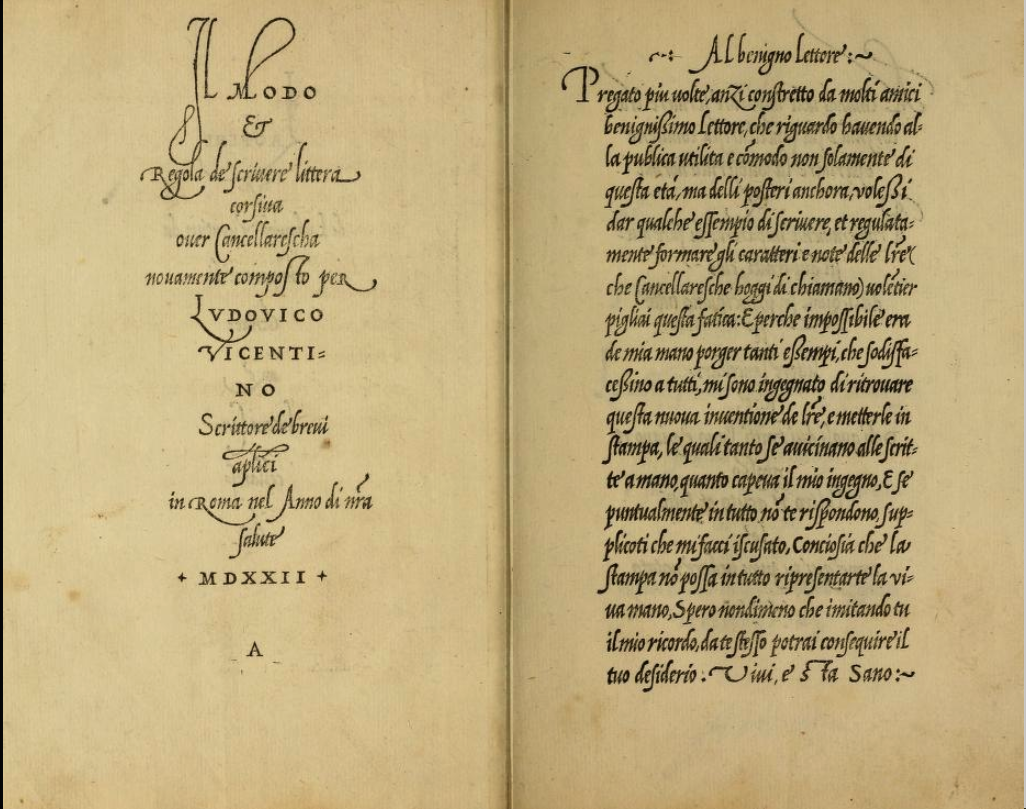 Il Modo
&
Regola de scriuere littera
corsiua
ouer Cancellarescha
nouamente composto per
LVDOVICO
VICENTI=
NO
Scrittore de breui
aplici
in Roma nel Anno di nr̃a
salute
+ MDXXII +
A
Al benigno lettore :~
Pregato piu uolte, anzi constretto da molti amici
benignißimo lettore, che riguardo hauendo al=
la publica utilita e cõmodo non solamente di
questa etá, ma delli posteri anchora, voleßi
dar qualche essempio di scriuere, et regulata=
mente formare gli caratteri e note delle lr̃e (
che Cancellaresche hoggi di chiamano) uolẽtier
pigliai questa fatica: E perche impossibile era
de mia mano porger tanti eßempi, che sodiffa=
ceßino a tutti, mi sono ingegnato di ritrouare
questa nuoua inuentione de lr̃e, e metterle in
stampa, le quali tanto se auicinano alle scrit=
te a mano, quanto capeua il mio ingegno, E se
puntualmente in tutto nõ te rispondono, sup=
plicoti che mi facci iscusato, Conciosia che la
stampa nõ possa in tutto ripresentarte la vi=
ua mano, Spero nondimeno che imitando tu
il mio ricordo, da te stesso potrai consequire il
tuo desiderio : Viui, e Sta Sano :~